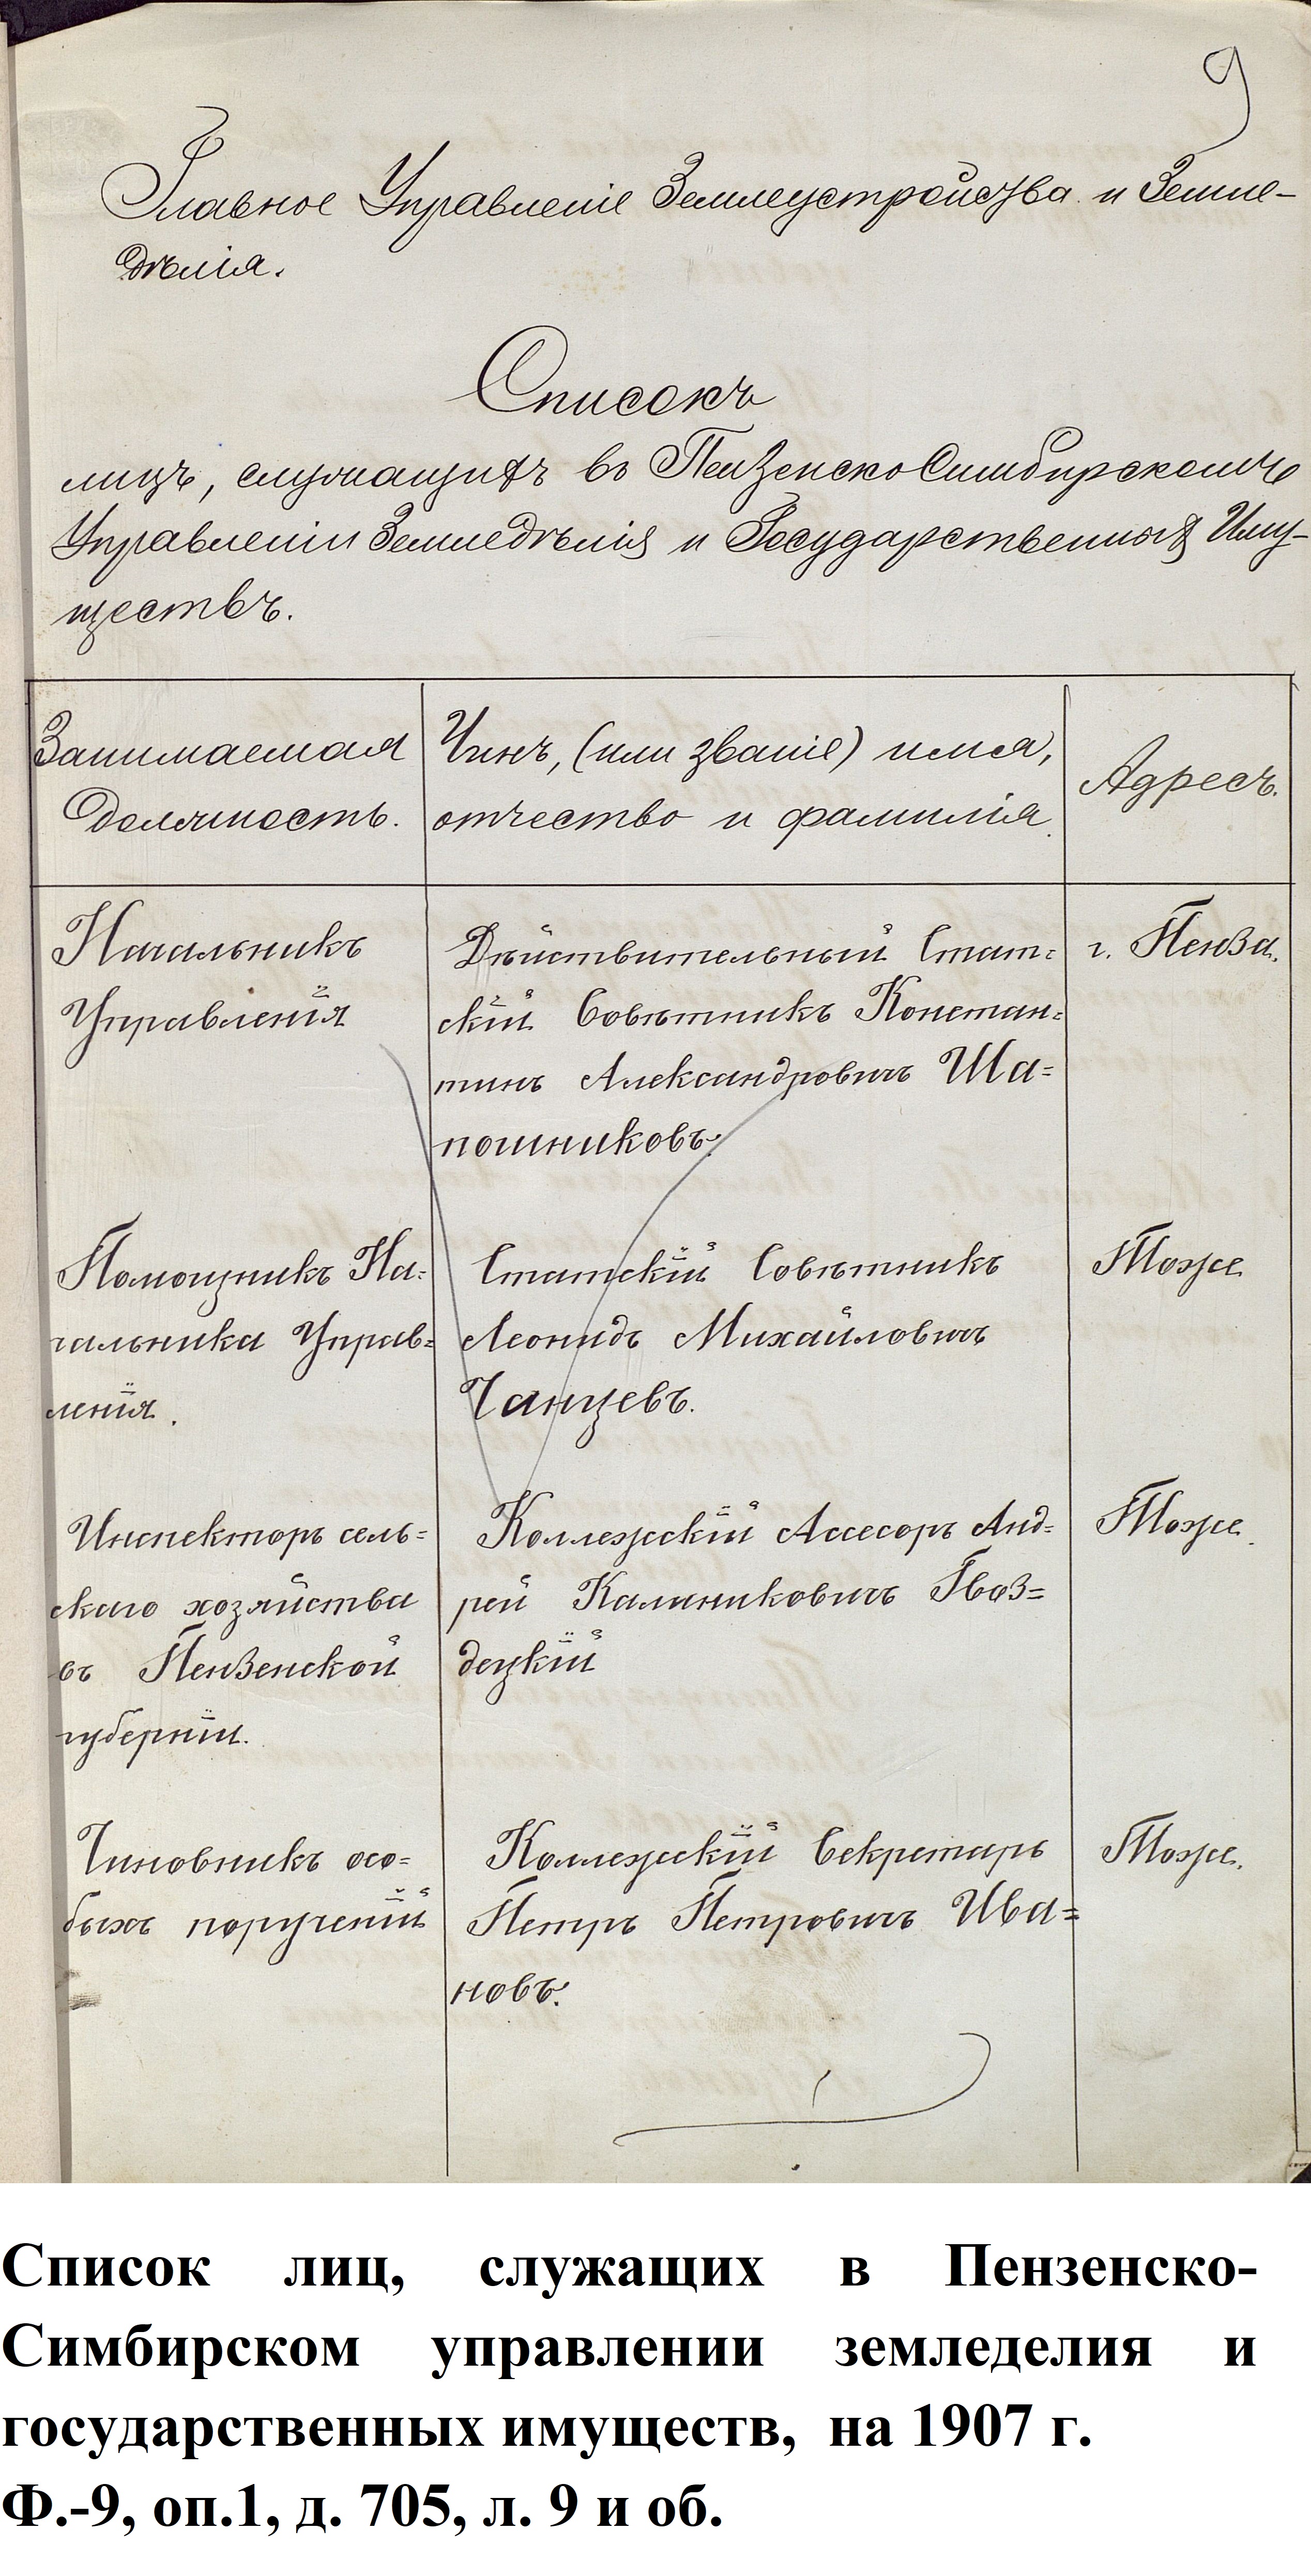 9
Главное Управленіе Землеустройства и Земле-
дѣлія.
Списокъ
лицъ, служащихъ въ Пензенско Симбирскомъ
Управленіи Земледѣлія и Государственныхъ Иму-
ществъ.
Занимаемая
должность.
Чинъ, (или званіе) имя,
отчество и фамилія.
Адресъ.
Начальникъ
Управленія
Дѣйствительный Стат=
скій Совѣтникъ Констан=
тинъ Александровичъ Ша=
пошниковъ.
г. Пенза.
Помощникъ На=
чальника Управ=
ленія.
Статскій Совѣтникъ
Леонидъ Михайловичъ
Чанцевъ.
Тоже
Инспекторъ сель=
скаго хозяйства
въ Пензенской
губерніи.
Коллежскій Ассесоръ Анд=
рей Калиниковичъ Гвоз=
децкій
Тоже.
Чиновникъ осо=
быхъ порученій
Коллежскій Секретарь
Петръ Петровичъ Ива=
новъ.
Тоже.
Список лиц, служащих в Пензенско-
Симбирском управлении земледелия и
государственных имуществ, на 1907 г.
Ф.-9, оп.1, д. 705, л. 9 и об.